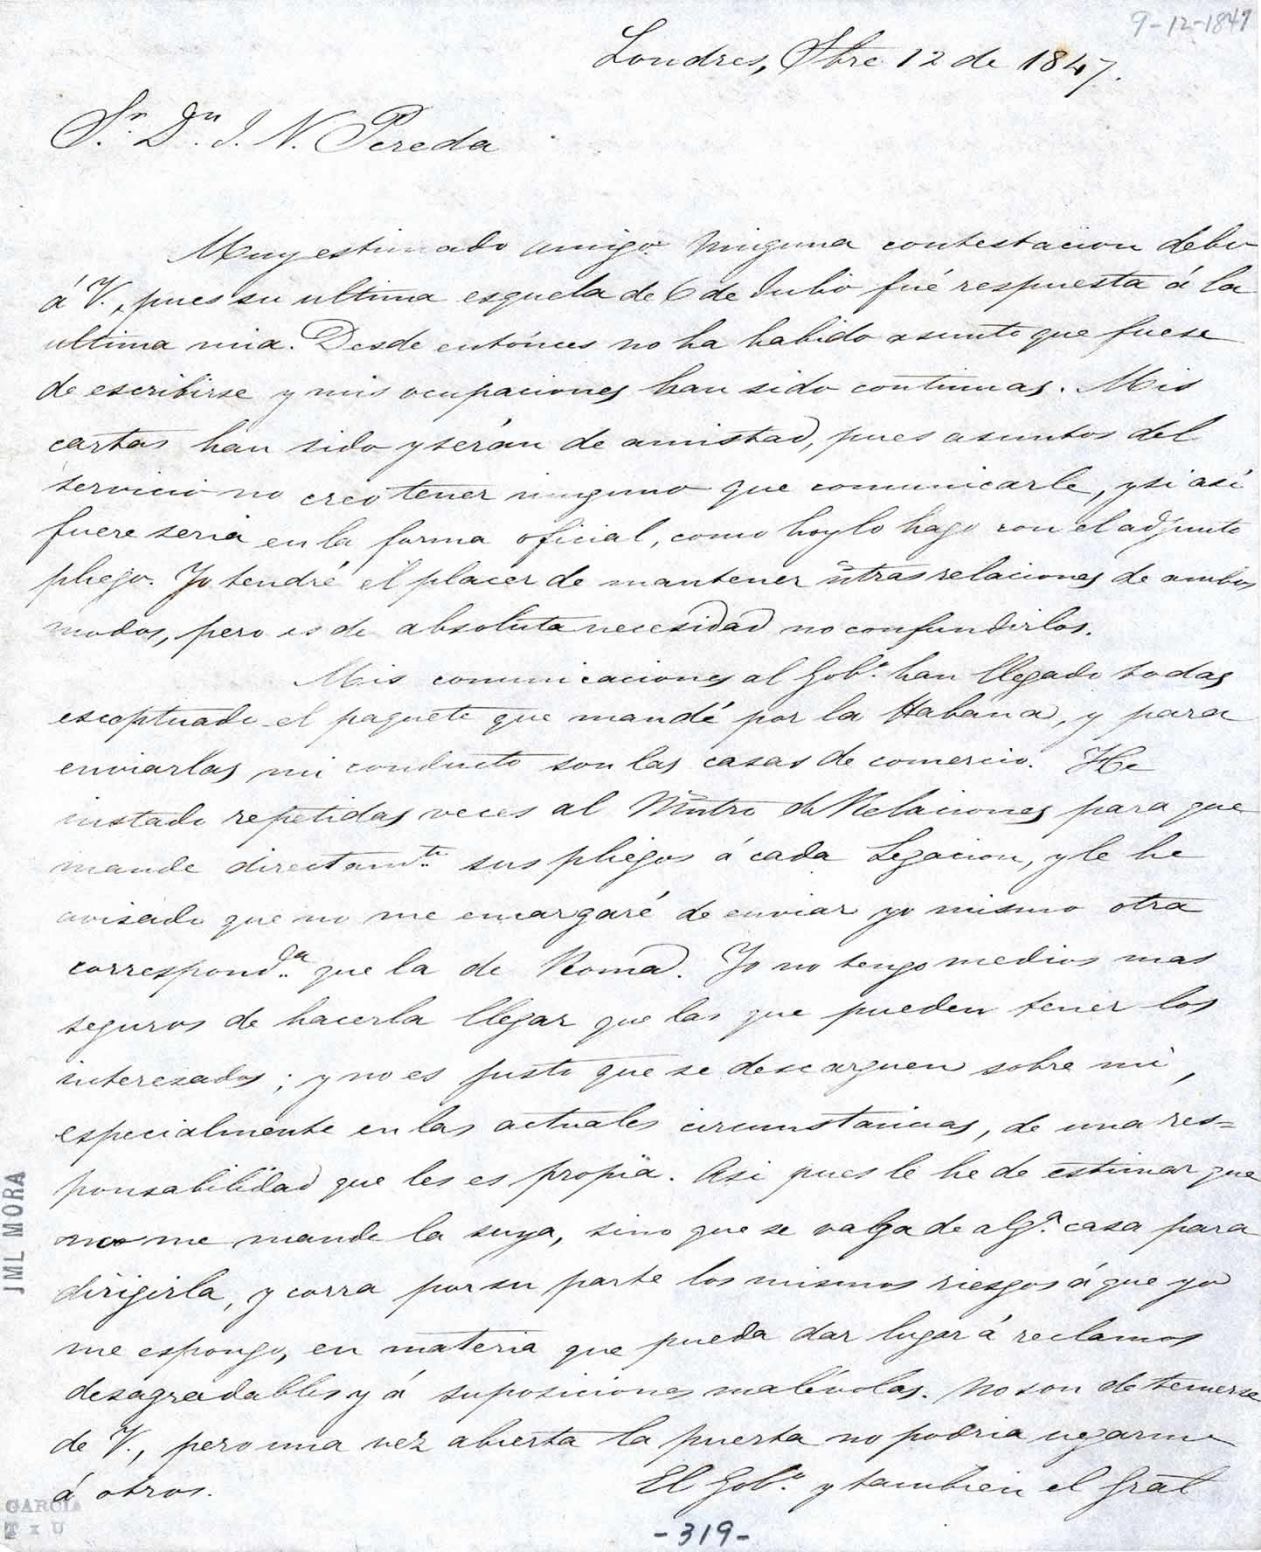 9-12-1847
Londres, 9bre 12 de 1847.
Sr. Dn. J. N. Pereda
Muy estimado amigo. Ninguna contestacion debo
á V., pues su ultima esquela de 6 de Julio fué respuesta á la
ultima mia. Desde entónces no ha habido asunto que fuese
de escribirse y mis ocupaciones han sido continuas. Mis
cartas han sido y serán de amistad, pues asuntos del
servicio no creo tener ninguno que comunicarle, y si así
fuere seria en la forma oficial, como hoy lo hago con el adjunto
pliego. Yo tendré el placer de mantener ntras relaciones de ambos
modos, pero es de absoluta necesidad no confundirlos.
Mis comunicaciones al Gobo. han llegado todas
esceptuado el paquete que mandé por la Habana, y para
enviarlas mi conducto son las casas de comercio. He
instado repetidas veces al Mintro de Relaciones para que
mande directamte. sus pliegos á cada Legacion, y le he
avisado que no me encargaré de enviar yo mismo otra
correspondcia. que la de Roma. Yo no tengo medios mas
seguros de hacerla llegar que las que pueden tener los
interesados; y no es justo que se descarguen sobre mi,
especialmente en las actuales circunstancias, de una res=
ponsabilidad que les es propia. Asi pues le he de estimar que
no me mande la suya, sino que se valga de alga. casa para
dirigirla, y corra por su parte los mismos riesgos á que yo
me espongo, en materia que pueda dar lugar á reclamos
desagradables y á suposiciones malévolas. No son de temerse
de V., pero una vez abierta la puerta no podria negarme
á otros. El Gobo. y tambien el Gral
-319-
JML MORA
GARCIA
T x U